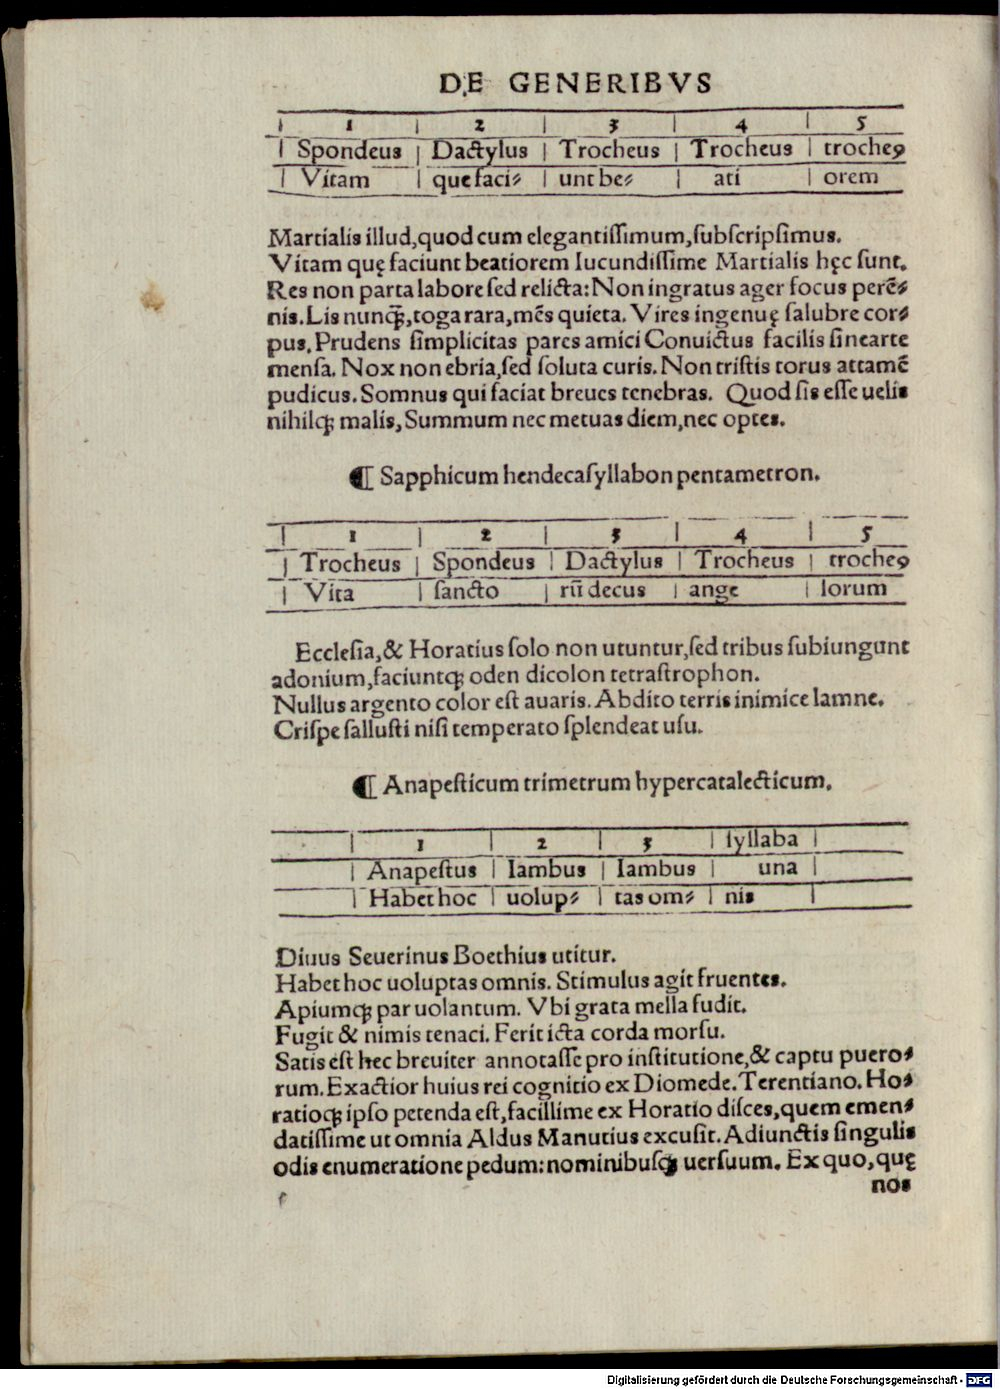 DE GENERIBVS
| 1 | 2 | 3 | 4 | 5
| Spondeus | Dactylus | Trocheus | Trocheus | trocheꝰ
| Vitam | que faci⸗ | unt be⸗ | ati | orem
Martialis illud,quod cum elegantiſſimum,ſubſcripſimus.
Vitam quę faciunt beatiorem Iucundiſſime Martialis hęc ſunt.
Res non parta labore ſed relicta: Non ingratus ager focus perẽ⸗
nis. Lis nunq̃,toga rara,mẽs quieta. Vires ingenuę ſalubre cor⸗
pus. Prudens ſimplicitas pares amici Conuictus facilis ſine arte
menſa. Nox non ebria,ſed ſoluta curis. Non triſtis torus attamẽ
pudicus. Somnus qui faciat breues tenebras. Quod ſis eſſe uelis
nihilq; malis, Summum nec metuas diem,nec optes.
¶ Sapphicum hendecaſyllabon pentametron.
| 1 | 2 | 3 | 4 | 5
| Trocheus | Spondeus | Dactylus | Trocheus | trocheꝰ
| Vita | ſancto | rũ decus | ange | lorum
Eccleſia,& Horatius ſolo non utuntur,ſed tribus ſubiungunt
adonium,faciuntq; oden dicolon tetraſtrophon.
Nullus argento color eſt auaris. Abdito terris inimice lamne.
Criſpe ſalluſti niſi temperato ſplendeat uſu.
¶ Anapeſticum trimetrum hypercatalecticum.
| 1 | 2 | 3 | ſyllaba |
| Anapeſtus | Iambus | Iambus | una |
| Habet hoc | uolup⸗ | tas om⸗ | nis |
Diuus Seuerinus Boethius utitur.
Habet hoc uoluptas omnis. Stimulus agit fruentes.
Apiumq; par uolantum. Vbi grata mella fudit.
Fugit & nimis tenaci. Ferit icta corda morſu.
Satis eſt hec breuiter annotaſſe pro inſtitutione,& captu puero⸗
rum. Exactior huius rei cognitio ex Diomede. Terentiano. Ho⸗
ratioq; ipſo petenda eſt,facillime ex Horatio diſces,quem emen⸗
datiſſime ut omnia Aldus Manutius excuſit. Adiunctis ſingulis
odis enumeratione pedum: nominibuſq; uerſuum. Ex quo,quę
nos
Digitalisierung gefördert durch die Deutsche Forschungsgemeinschaft - DFG